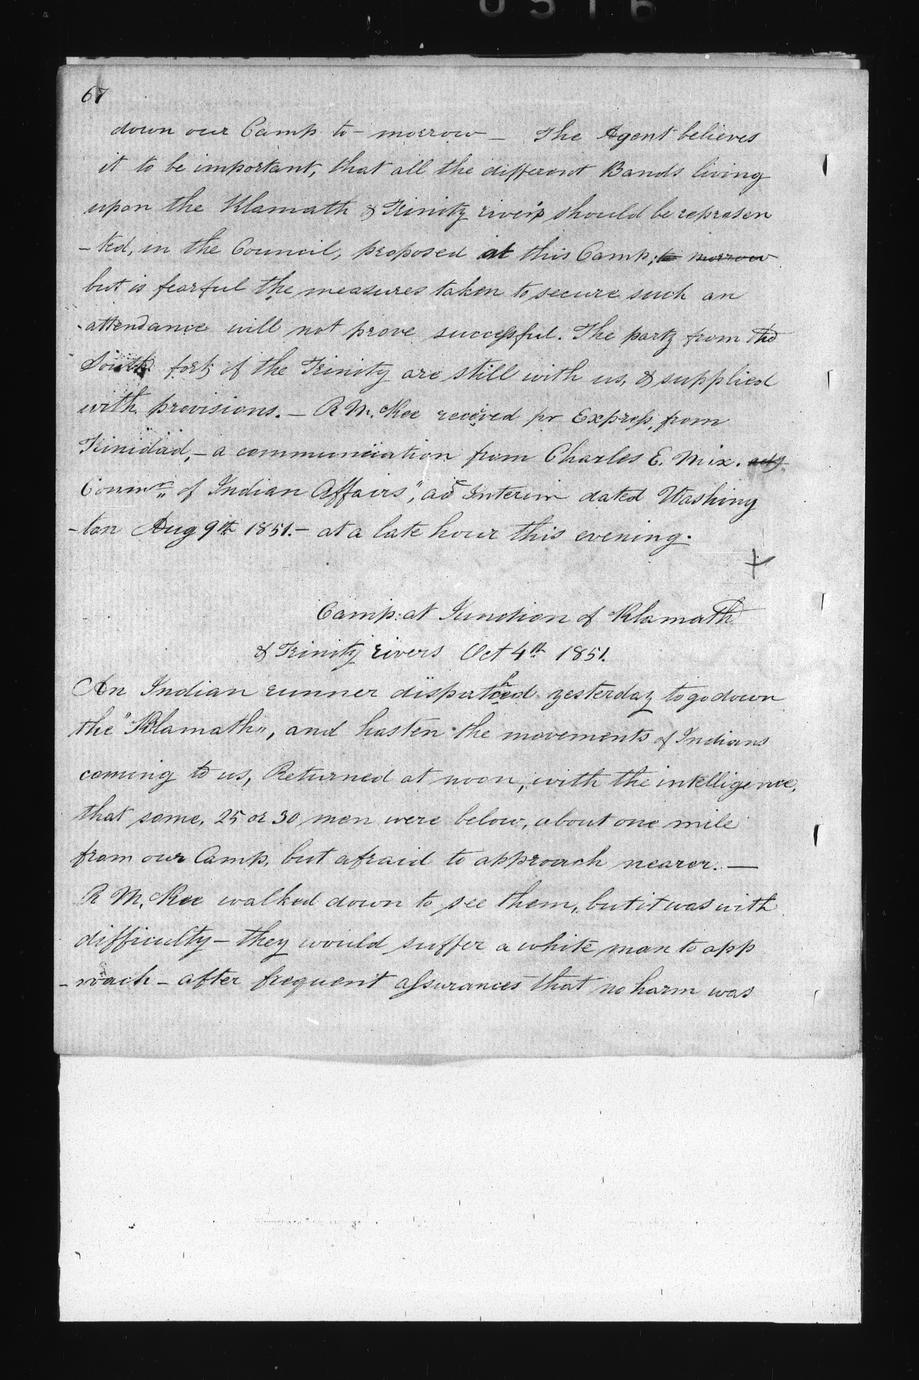 0516
67
down our Camp to-morrow — The Agent believes
it to be important, that all the different Bands living
upon the Klamath & Trinity rivers should be represen
-ted, in the Council, proposed at this Camp, to morrow
but is fearful the measures taken to secure such an
-attendance will not prove successful. The party from the
South fork of the Trinity are still with us, & supplied
with provisions. — R McKee received pr Express, from
Trinidad, — a communication from Charles E. Mix. actg
Commr. of Indian Affairs", ad Interim dated Washing
-ton Aug 9th 1851. — at a late hour this evening.
Camp at Junction of Klamath
& Trinity rivers Oct 4th 1851.
An Indian runner dispatched yesterday to go down
the "Klamath", and hasten the movements of Indians
coming to us, Returned at noon, with the intelligence,
that some, 25 or 30 men were below, about one mile
from our Camp, but afraid to approach nearer. —
R McKee walked down to see them, but it was with
difficulty — they would suffer a white man to app
-roach — after frequent assurances that no harm was